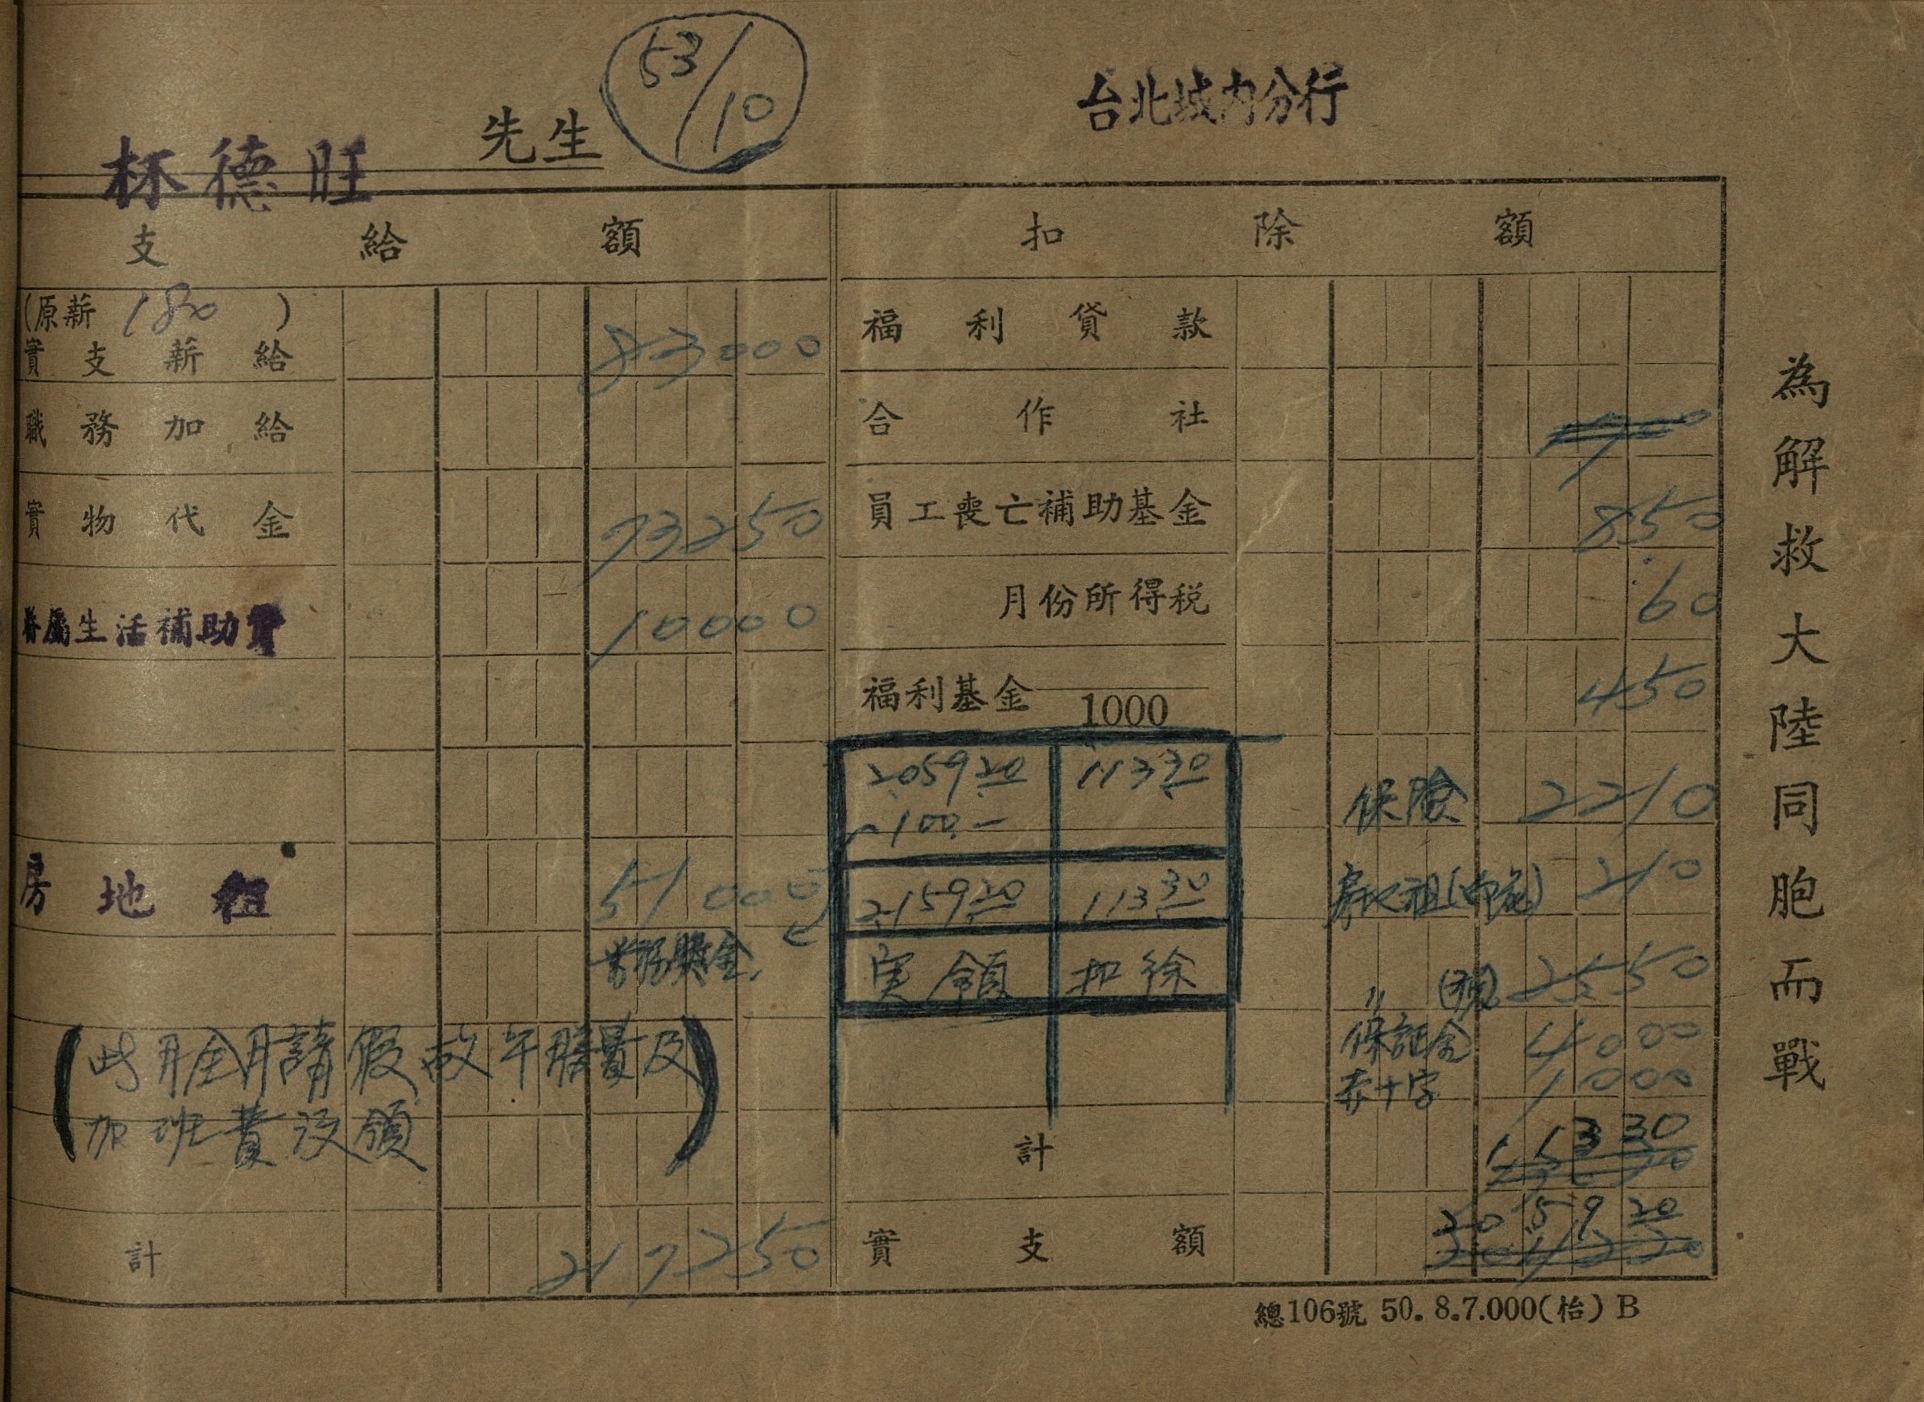 53/10
台北城內分行
林德旺 先生
支給額
扣除額
(原薪 180 )
實支薪給 83000
福利貸款
職務加給
合作社
實物代金 73250
員工喪亡補助基金 850
眷屬生活補助費 10000
月份所得稅 60
福利基金 1000 450
2059.20 113.30
100.-
保險 2210
房地租 51000
2159.20 113.30
房地租( ) 210
獎金
実領 扣除
〃 2550
(此月全月請假故午膳費及
加班費沒領)
保証金 4000
赤十字 1000
計 11330
計 217250
實支額 205920
總106號 50.8.7.000(怡)B
為解救大陸同胞而戰